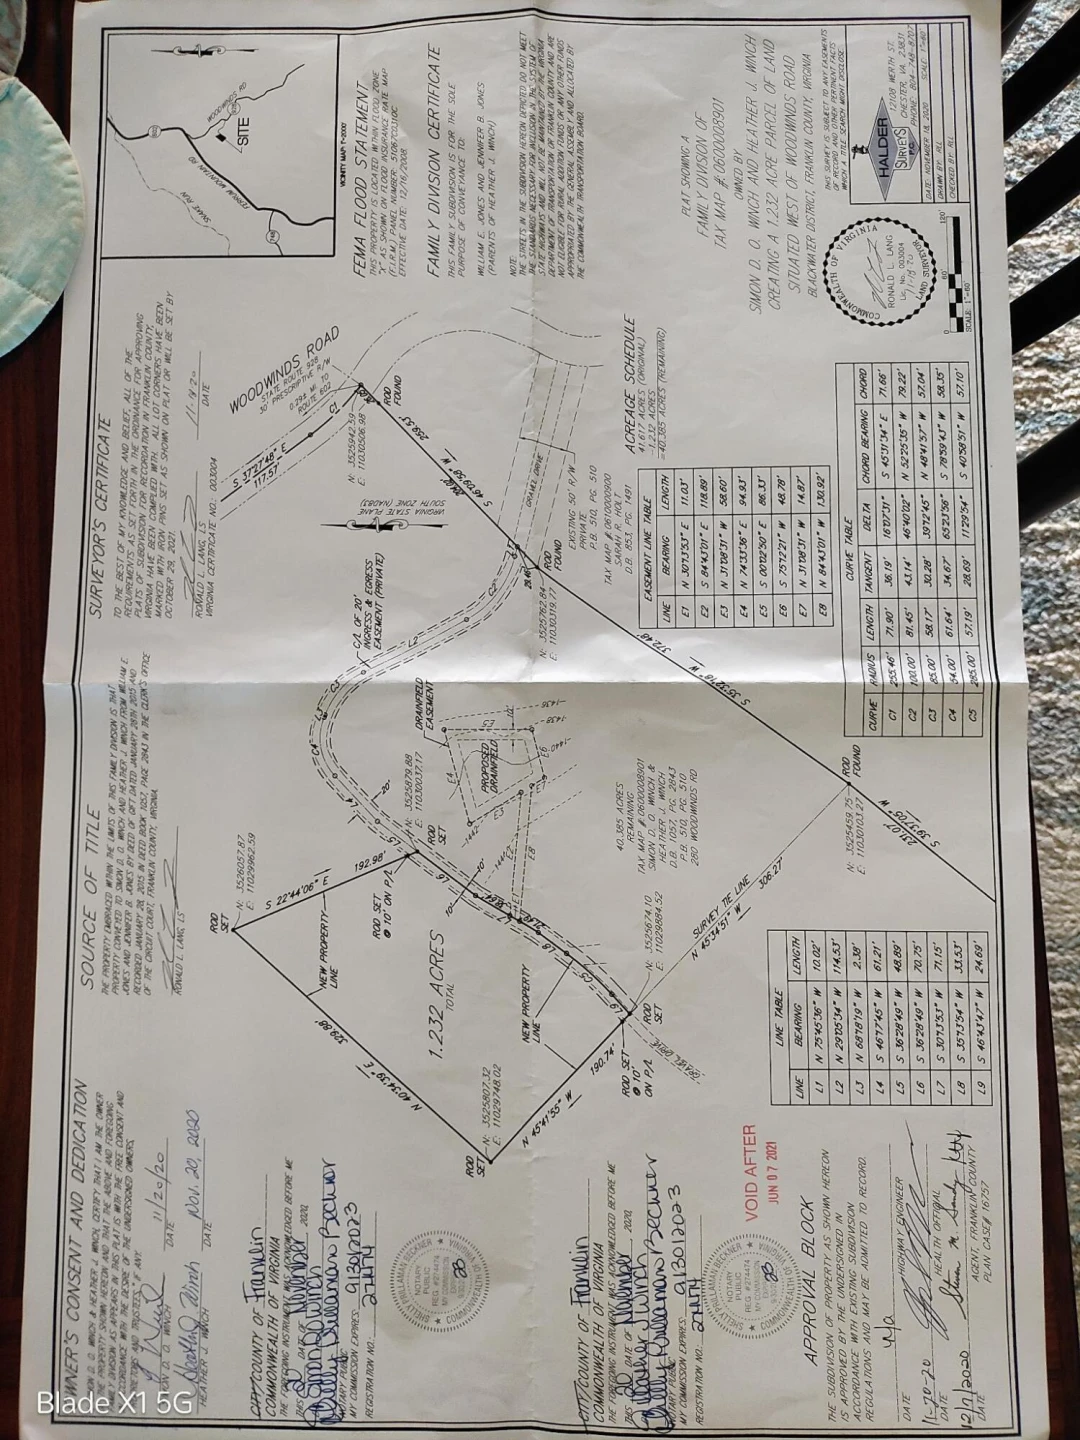 OWNER'S CONSENT AND DEDICATION
11/20/20
DATE
Nov. 20, 2020
HEATHER J. WINCH
DATE
CITY/COUNTY OF Franklin
COMMONWEALTH OF VIRGINIA
THE FOREGOING INSTRUMENT WAS ACKNOWLEDGED BEFORE ME
THIS 20 DAY OF November 2020,
MY COMMISSION EXPIRES: 9/30/2023
REGISTRATION NO.: 274474
CITY/COUNTY OF Franklin
COMMONWEALTH OF VIRGINIA
THE FOREGOING INSTRUMENT WAS ACKNOWLEDGED BEFORE ME
THIS 20 DAY OF November 2020,
MY COMMISSION EXPIRES: 9/30/2023
REGISTRATION NO.: 274474
VOID AFTER
JUN 07 2021
APPROVAL BLOCK
THE SUBDIVISION OF PROPERTY AS SHOWN HEREON
IS APPROVED BY THE UNDERSIGNED IN
ACCORDANCE WITH EXISTING SUBDIVISION
REGULATIONS AND MAY BE ADMITTED TO RECORD.
n/a
DATE HIGHWAY ENGINEER
11-20-20
DATE HEALTH OFFICIAL
12/7/2020
DATE AGENT, FRANKLIN COUNTY
PLAN CASE# 16757
SOURCE OF TITLE
THE PROPERTY EMBRACED WITHIN THE LIMITS OF THIS FAMILY DIVISION IS THE
PROPERTY CONVEYED TO SIMON D. O. WINCH AND HEATHER J. WINCH FROM WILLIAM E.
JONES AND JENNIFER B. JONES BY DEED OF GIFT DATED JANUARY 28TH 2015 AND
RECORDED JANUARY 28, 2015 IN DEED BOOK 1057, PAGE 2843 IN THE CLERK'S OFFICE
OF THE CIRCUIT COURT, FRANKLIN COUNTY, VIRGINIA.
RONALD L. LANG, LS
SURVEYOR'S CERTIFICATE
TO THE BEST OF MY KNOWLEDGE AND BELIEF, ALL OF THE
REQUIREMENTS AS SET FORTH IN THE ORDINANCE FOR APPROVING
PLATS OF SUBDIVISION FOR RECORDATION IN FRANKLIN COUNTY,
VIRGINIA HAVE BEEN COMPLIED WITH. ALL LOT CORNERS HAVE BEEN
MARKED WITH IRON PINS SET AS SHOWN ON PLAT OR WILL BE SET BY
OCTOBER 29, 2021.
11-18-20
RONALD L. LANG, LS DATE
VIRGINIA CERTIFICATE NO: 003004
SITE
WOODWINDS RD
FERRUM MOUNTAIN RD
VICINITY MAP 1"=2000'
FEMA FLOOD STATEMENT
THIS PROPERTY IS LOCATED WITHIN FLOOD ZONE
"X" AS SHOWN ON FLOOD INSURANCE RATE MAP
(F.I.R.M.) PANEL NUMBER: 51067C0310C
EFFECTIVE DATE: 12/16/2008.
FAMILY DIVISION CERTIFICATE
THIS FAMILY SUBDIVISION IS FOR THE SOLE
PURPOSE OF CONVEYANCE TO:
WILLIAM E. JONES AND JENNIFER B. JONES
(PARENTS OF HEATHER J. WINCH)
NOTE:
THE STREETS IN THE SUBDIVISION HEREON DEPICTED DO NOT MEET
THE STANDARDS NECESSARY FOR INCLUSION IN THE SYSTEM OF
STATE HIGHWAYS AND WILL NOT BE MAINTAINED BY THE VIRGINIA
DEPARTMENT OF TRANSPORTATION OR FRANKLIN COUNTY AND ARE
NOT ELIGIBLE FOR RURAL ADDITION FUNDS OR ANY OTHER FUNDS
APPROPRIATED BY THE GENERAL ASSEMBLY AND ALLOCATED BY
THE COMMONWEALTH TRANSPORTATION BOARD.
PLAT SHOWING A
FAMILY DIVISION OF
TAX MAP #: 0600008901
OWNED BY
SIMON D. O. WINCH AND HEATHER J. WINCH
CREATING A 1.232 ACRE PARCEL OF LAND
SITUATED WEST OF WOODWINDS ROAD
BLACKWATER DISTRICT, FRANKLIN COUNTY, VIRGINIA
THIS SURVEY IS SUBJECT TO ANY EASEMENTS
OF RECORD AND OTHER PERTINENT FACTS
WHICH A TITLE SEARCH MIGHT DISCLOSE.
HALDER
SURVEYS
P.C.
12108 WERTH ST.
CHESTER, VA. 23831
PHONE: 804-748-8707
DATE: NOVEMBER 18, 2020 SCALE: 1"=60'
DRAWN BY: RLL
CHECKED BY: RLL
COMMONWEALTH OF VIRGINIA
RONALD L. LANG
Lic. No. 003004
11-18-20
LAND SURVEYOR
0 60' 120'
SCALE: 1"=60'
WOODWINDS ROAD
STATE ROUTE 928
30' PRESCRIPTIVE R/W
0.29± MI. TO
ROUTE 602
S 37°27'48" E
117.57'
C1
N: 3525942.59
E: 11030506.98
ROD
FOUND
VIRGINIA STATE PLANE
SOUTH ZONE (NAD83)
S 46°09'58" W
259.53'
GRAVEL DRIVE
EXISTING 50' R/W
PRIVATE
P.B. 510, PG. 510
TAX MAP # 0610000900
SARAH R. HOLT
D.B. 853, PG. 1491
ROD
FOUND
N: 3525762.84
E: 11030319.77
28.46'
C/L OF 20'
INGRESS & EGRESS
EASEMENT (PRIVATE)
DRAINFIELD
EASEMENT
PROPOSED
DRAINFIELD
ROD
SET
N: 3526057.87
E: 11029962.59
S 22°44'06" E
192.98'
N: 3525879.88
E: 11030037.17
ROD
SET
ROD SET
@ 10' ON P/L
NEW PROPERTY
LINE
1.232 ACRES
TOTAL
N 40°34'39" E
329.88'
NEW PROPERTY
LINE
ROD
SET
N: 3525807.32
E: 11029748.02
N 45°41'55" W
190.74'
ROD SET
@ 10'
ON P/L
GRAVEL DRIVE
ROD
SET
N: 3525674.10
E: 11029884.52
SURVEY TIE LINE
N 45°34'51" W
306.27'
40.385 ACRES
REMAINING
TAX MAP # 0600008901
SIMON D. O. WINCH &
HEATHER J. WINCH
D.B. 1057, PG. 2843
P.B. 510, PG. 510
280 WOODWINDS RD
S 35°32'16" W
372.48'
ROD
FOUND
N: 3525459.75
E: 11030103.27
S 39°17'05" W
231.07'
ACREAGE SCHEDULE
41.617 ACRES (ORIGINAL)
-1.232 ACRES
=40.385 ACRES (REMAINING)
EASEMENT LINE TABLE
LINE BEARING LENGTH
E1 N 30°13'53" E 11.03'
E2 S 84°43'01" E 118.89'
E3 N 31°08'31" W 58.60'
E4 N 74°33'36" E 94.93'
E5 S 00°02'50" E 86.33'
E6 S 75°12'21" W 48.78'
E7 N 31°08'31" W 14.87'
E8 N 84°43'01" W 130.92'
CURVE TABLE
CURVE RADIUS LENGTH TANGENT DELTA CHORD BEARING CHORD
C1 255.46' 71.90' 36.19' 16°07'31" S 45°31'34" E 71.66'
C2 100.00' 81.45' 43.14' 46°40'02" N 52°25'35" W 79.22'
C3 85.00' 58.17' 30.28' 39°12'45" N 48°41'57" W 57.04'
C4 54.00' 61.64' 34.67' 65°23'56" S 78°59'43" W 58.35'
C5 285.00' 57.19' 28.69' 11°29'54" S 40°58'51" W 57.10'
LINE TABLE
LINE BEARING LENGTH
L1 N 75°45'36" W 10.02'
L2 N 29°05'34" W 114.53'
L3 N 68°18'19" W 2.38'
L4 S 46°17'45" W 61.21'
L5 S 36°28'49" W 48.89'
L6 S 36°28'49" W 70.75'
L7 S 30°13'53" W 71.15'
L8 S 35°13'54" W 33.53'
L9 S 46°43'47" W 24.69'
Blade X1 5G